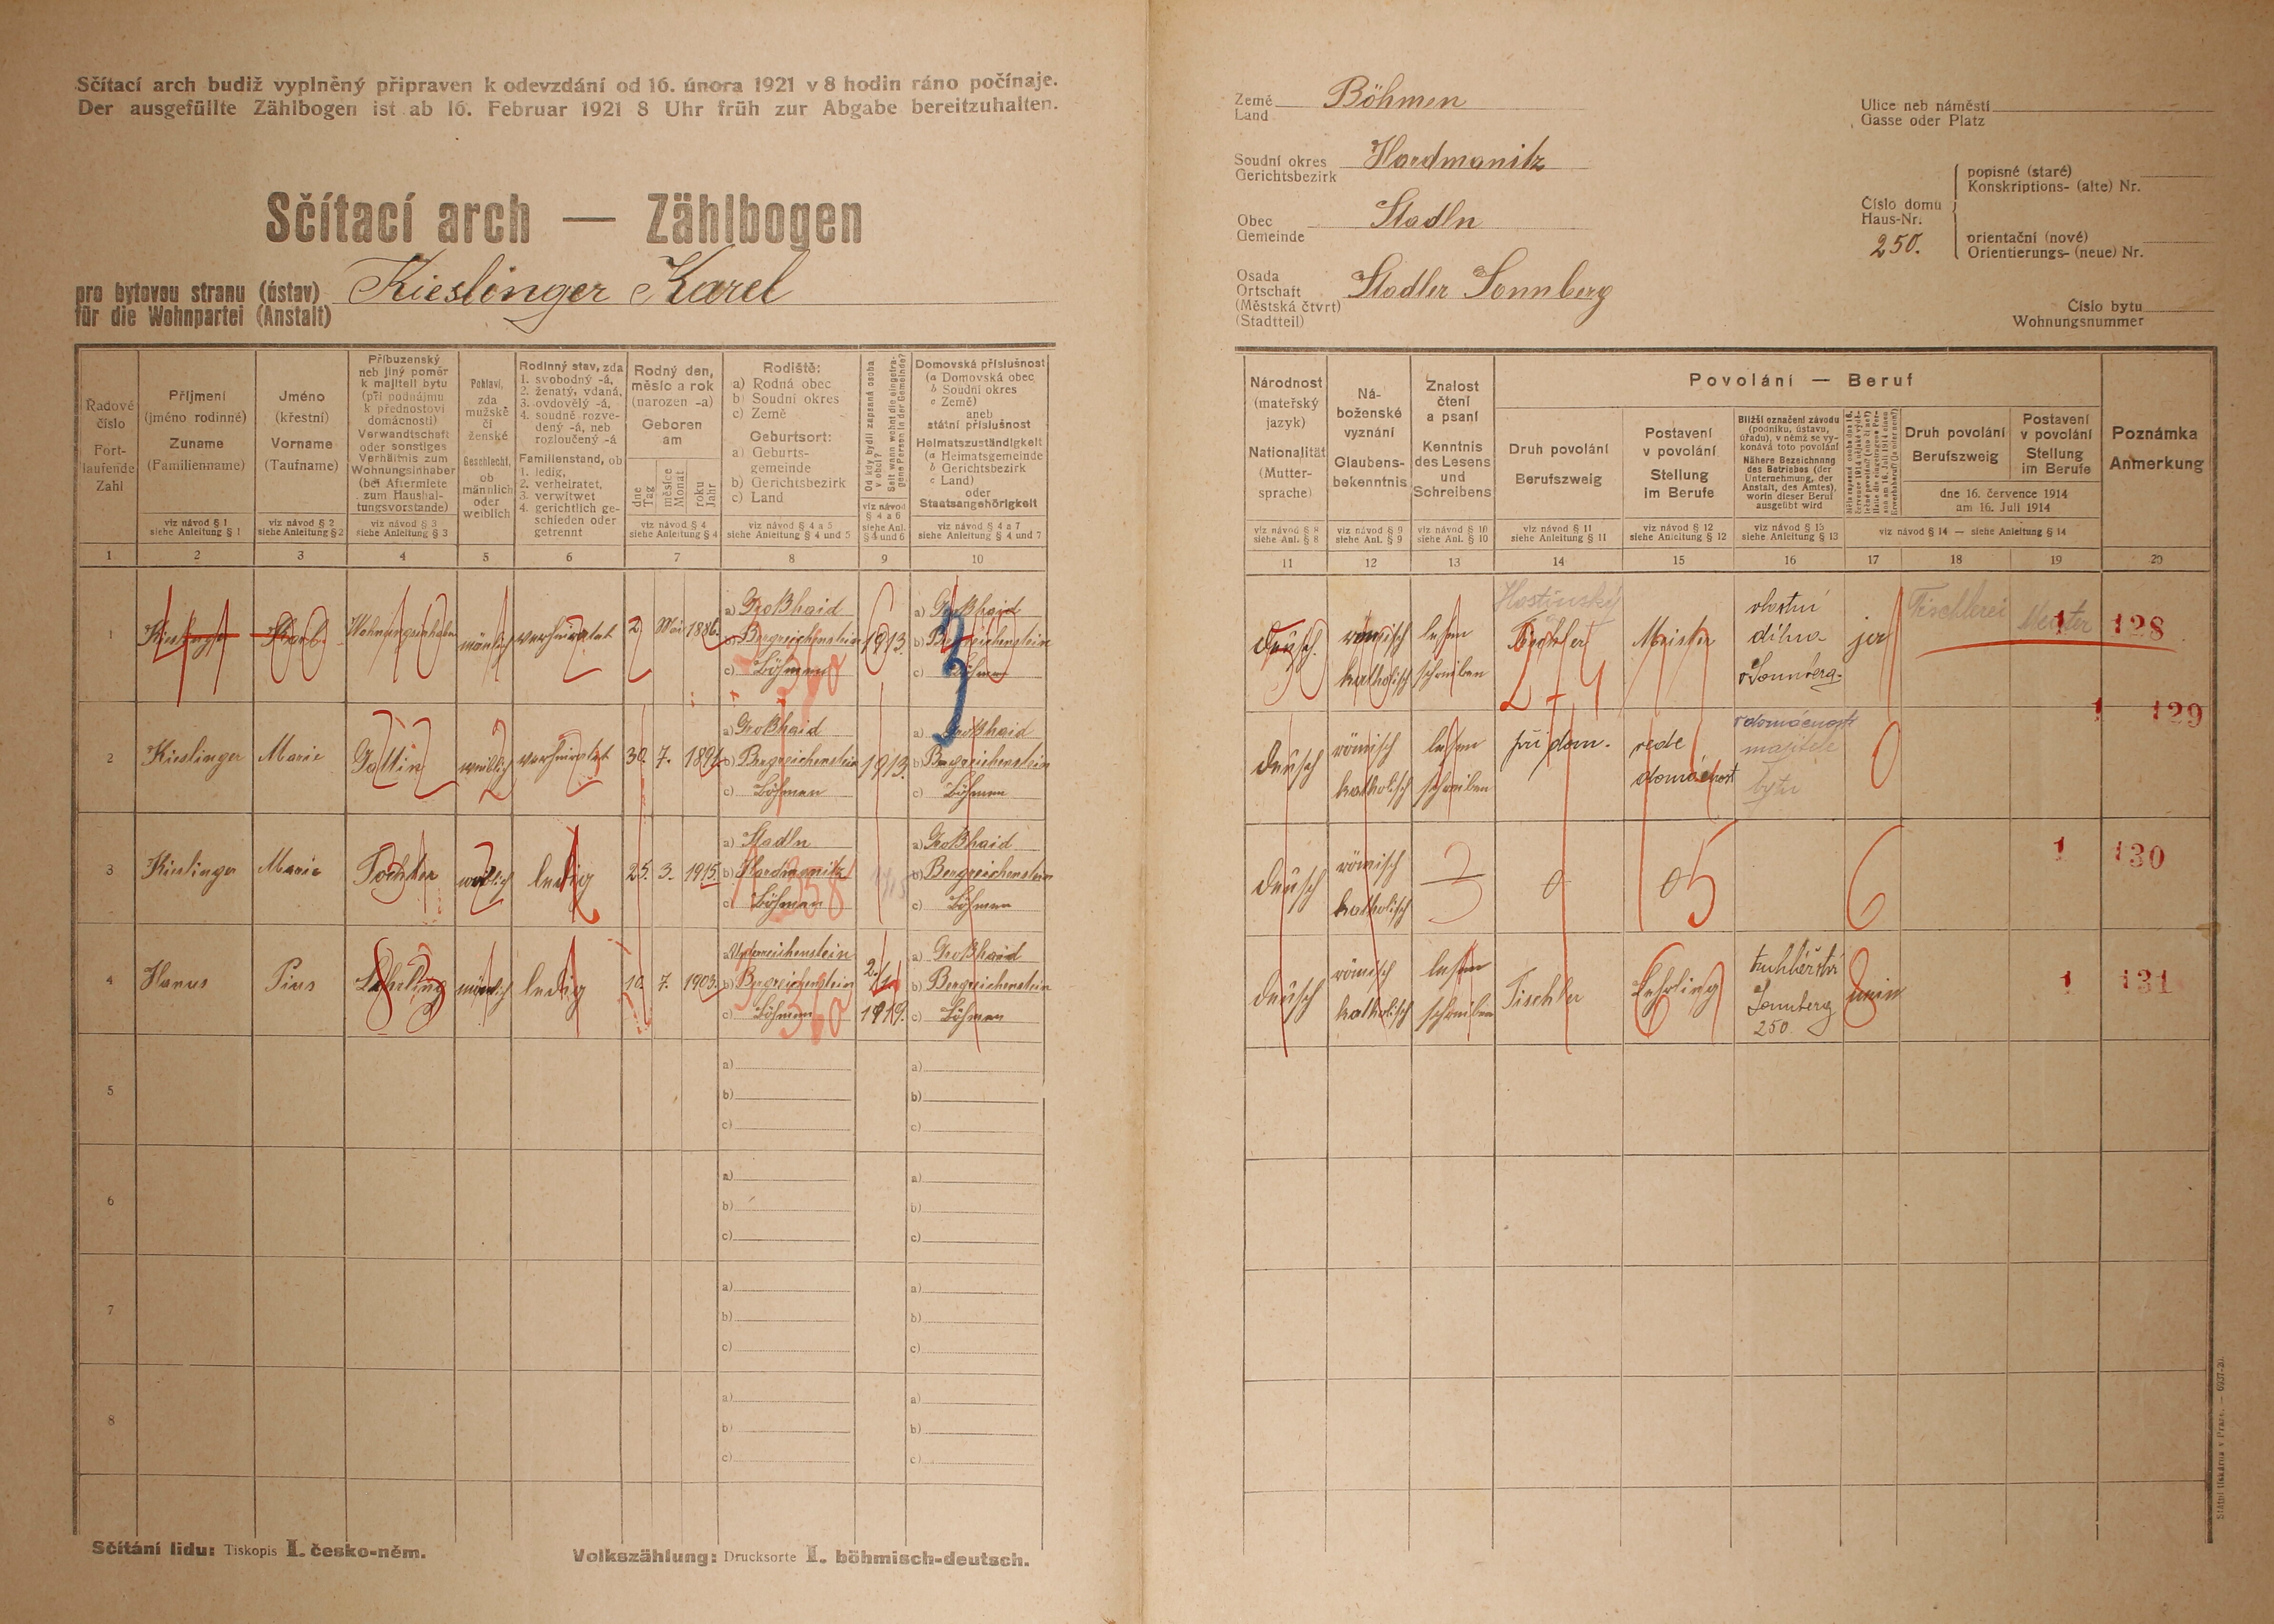 Sčítací arch budiž vyplněný připraven k odevzdání od 16. února 1921 v 8 hodin ráno počínaje.
Der ausgefüllte Zählbogen ist ab 16. Februar 1921 8 Uhr früh zur Abgabe bereitzuhalten.
Sčítací arch — Zählbogen
pro bytovou stranu (ústav)
für die Wohnpartei (Anstalt)
Kieslinger Karel
Země
Land
Böhmen
Soudní okres
Gerichtsbezirk
Hardmanitz
Obec
Gemeinde
Stadln
Osada
Ortschaft
(Městská čtvrt)
(Stadtteil)
Stadler Sonnberg
Ulice neb náměstí
Gasse oder Platz
Číslo domu
Haus-Nr.
250.
popisné (staré)
Konskriptions- (alte) Nr.
orientační (nové)
Orientierungs- (neue) Nr.
Číslo bytu
Wohnungsnummer
Řadové
číslo
Fort-
laufende
Zahl
Příjmení
(jméno rodinné)
Zuname
(Familienname)
viz návod § 1
siehe Anleitung § 1
Jméno
(křestní)
Vorname
(Taufname)
viz návod § 2
siehe Anleitung § 2
Příbuzenský
neb jiný poměr
k majiteli bytu
(při podnájmu
k přednostovi
domácnosti)
Verwandtschaft
oder sonstiges
Verhältnis zum
Wohnungsinhaber
(bei Aftermiete
zum Haushal-
tungsvorstande)
viz návod § 3
siehe Anleitung § 3
Pohlaví,
zda
mužské
či
ženské
Geschlecht,
ob
männlich
oder
weiblich
Rodinný stav, zda
1. svobodný -á,
2. ženatý, vdaná,
3. ovdovělý -á,
4. soudně rozve-
dený -á, neb
rozloučený -á
Familienstand, ob
1. ledig,
2. verheiratet,
3. verwitwet
4. gerichtlich ge-
schieden oder
getrennt
Rodný den,
měsíc a rok
(narozen -a)
Geboren
am
dne
Tag
měsíce
Monat
roku
Jahr
viz návod § 4
siehe Anleitung § 4
Rodiště:
a) Rodná obec
b) Soudní okres
c) Země
Geburtsort:
a) Geburts-
gemeinde
b) Gerichtsbezirk
c) Land
viz návod § 4 a 5
siehe Anleitung § 4 und 5
Od kdy bydlí zapsaná osoba
v obci?
Seit wann wohnt die eingetra-
gene Person in der Gemeinde?
viz návod
§ 4 a 6
siehe Anl.
§ 4 und 6
Domovská příslušnost
(a Domovská obec
b Soudní okres
c Země)
aneb
státní příslušnost
Heimatszuständigkeit
(a Heimatsgemeinde
b Gerichtsbezirk
c Land)
oder
Staatsangehörigkeit
viz návod § 4 a 7
siehe Anleitung § 4 und 7
Národnost
(mateřský
jazyk)
Nationalität
(Mutter-
sprache)
viz návod § 8
siehe Anl. § 8
Ná-
boženské
vyznání
Glaubens-
bekenntnis
viz návod § 9
siehe Anl. § 9
Znalost
čtení
a psaní
Kenntnis
des Lesens
und
Schreibens
viz návod § 10
siehe Anl. § 10
Povolání — Beruf
Druh povolání
Berufszweig
viz návod § 11
siehe Anleitung § 11
Postavení
v povolání
Stellung
im Berufe
viz návod § 12
siehe Anleitung § 12
Bližší označení závodu
(podniku, ústavu,
úřadu), v němž se vy-
konává toto povolání
Nähere Bezeichnung
des Betriebes (der
Unternehmung, der
Anstalt, des Amtes),
worin dieser Beruf
ausgeübt wird
viz návod § 13
siehe Anleitung § 13
Druh povolání
Berufszweig
Postavení
v povolání
Stellung
im Berufe
dne 16. července 1914
am 16. Juli 1914
viz návod § 14 — siehe Anleitung § 14
Poznámka
Anmerkung
1 2 3 4 5 6 7 8 9 10 11 12 13 14 15 16 17 18 19 20
1 Kieslinger Karl Wohnungsinhaber männlich verheiratet 2. Mai 1886.
a) Großhaid
b) Bergreichenstein
c) Böhmen
360
1913.
a) Großhaid
b) Bergreichenstein
c) Böhmen
3
deutsch.
römisch
katholisch
lesen
schreiben
Hostinský
Tischler
Meister
vlastní
dílna
Sonnberg.
ja
Tischlerei
Meister
1 128
2 Kieslinger Marie Gattin weiblich verheiratet 30. 7. 1891.
a) Großhaid
b) Bergreichenstein
c) Böhmen
1913.
a) Großhaid
b) Bergreichenstein
c) Böhmen
deutsch
römisch
katholisch
lesen
schreiben
při dom.
vede
domácnost
v domácnosti
majitele
bytu
0
1 129
3 Kieslinger Marie Tochter weiblich ledig 25. 3. 1915.
a) Stadln
b) Hardmanitz
c) Böhmen
358
a) Großhaid
b) Bergreichenstein
c) Böhmen
deutsch
römisch
katholisch
3
0
05
6
1 130
4 Hanus Pius Lehrling männlich ledig 10. 7. 1903.
a) Unterreichenstein
b) Bergreichenstein
c) Böhmen
360
2./1.
1919.
a) Großhaid
b) Bergreichenstein
c) Böhmen
deutsch
römisch
katholisch
lesen
schreiben
Tischler
Lehrling
truhlářství
Sonnberg
250.
nein
1 131
5
a)
b)
c)
a)
b)
c)
6
a)
b)
c)
a)
b)
c)
7
a)
b)
c)
a)
b)
c)
8
a)
b)
c)
a)
b)
c)
Sčítání lidu: Tiskopis I. česko-něm.
Volkszählung: Drucksorte I. böhmisch-deutsch.
Státní tiskárna v Praze. — 6937-20.